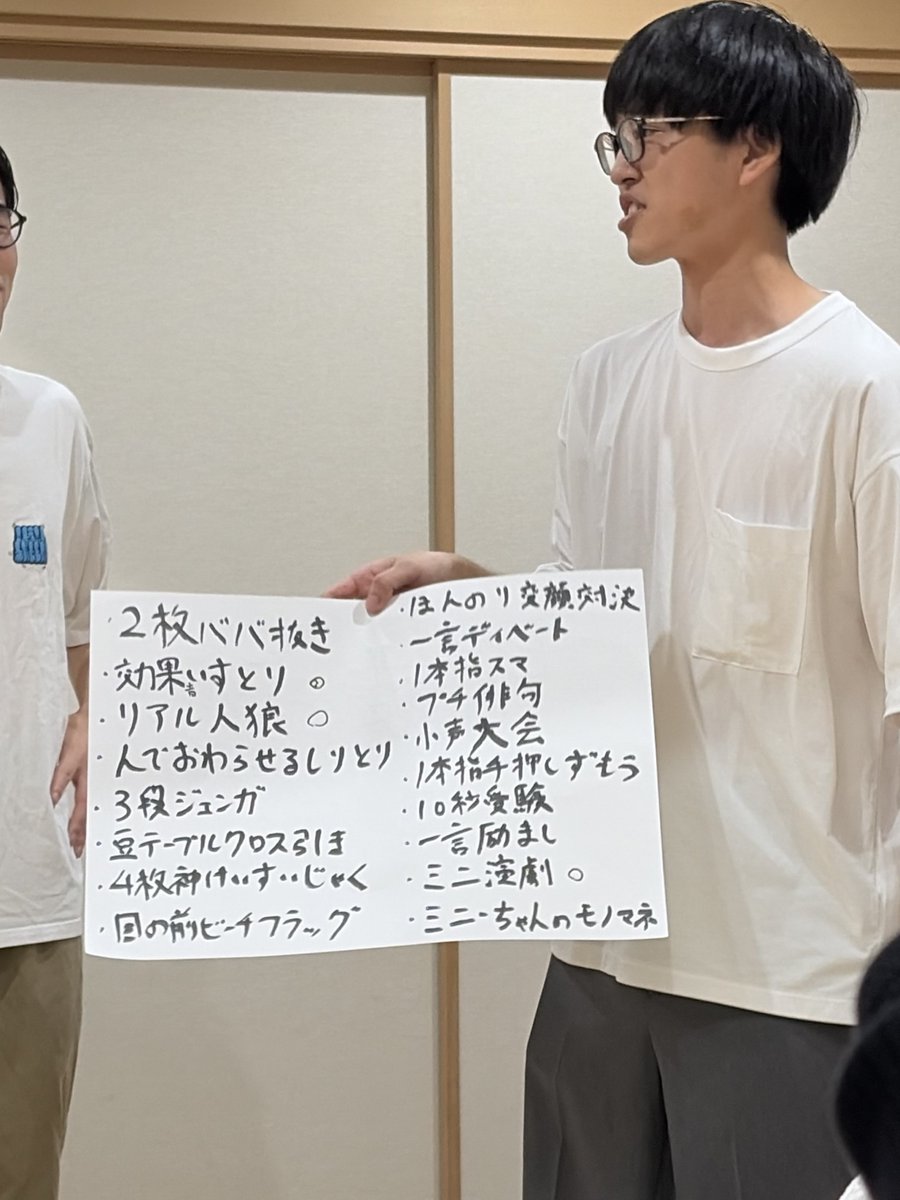 ・2枚ババ抜き
・効果音いすとり ◎
・リアル人狼 ○
・人でおわらせるしりとり
・3段ジェンガ
・豆テーブルクロス引き
・4枚神けいすいじゃく
・目の前ビーチフラッグ
・ほんのり変顔対決
・一言ディベート
・1本指スマ
・プチ俳句
・小声大会
・1本指手押しずもう
・10秒受験
・一言励まし
・ミニ演劇 ○
・ミニーちゃんのモノマネ